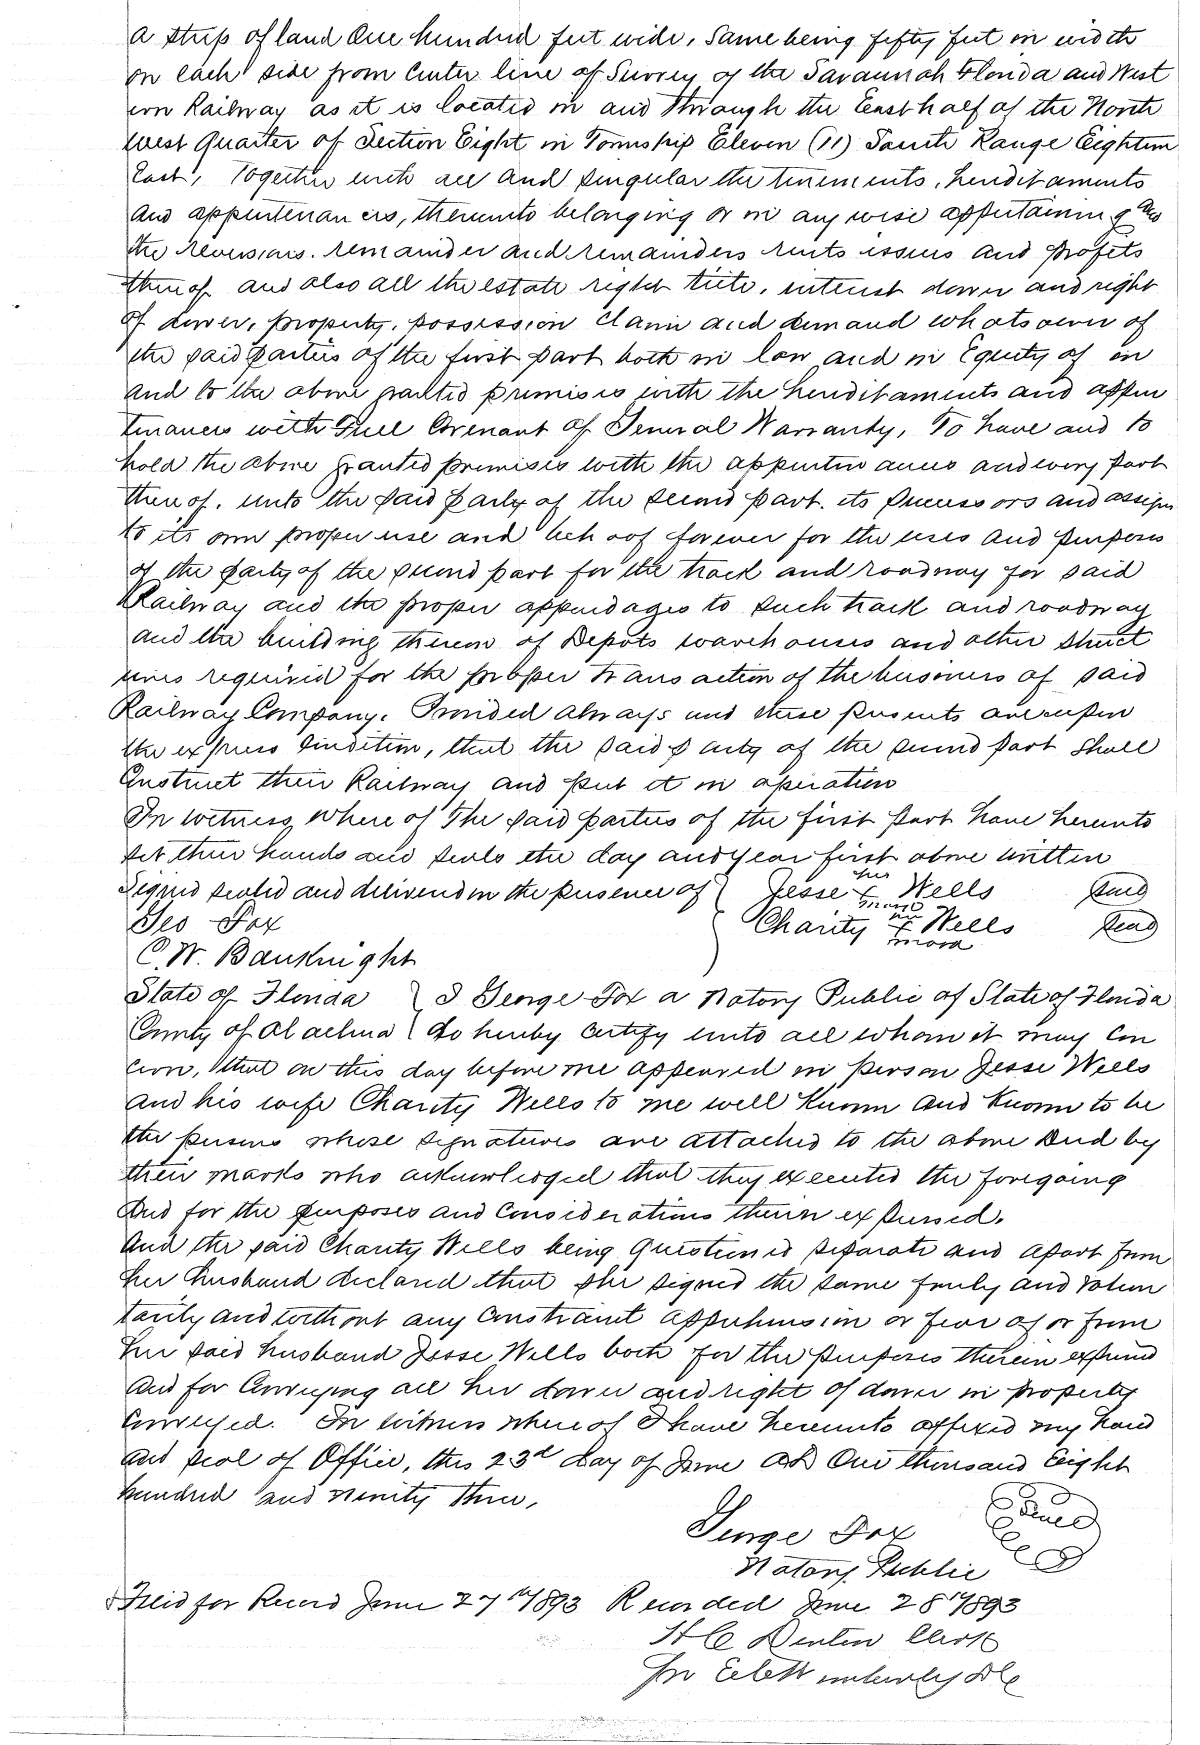 A strip of land One hundred feet wide, Same being fifty feet in width
on each side from Center line of Survey of the Savannah Florida and West
ern Railway as it is located in and through the East half of the North
West Quarter of Section Eight in Township Eleven (11) South Range Eighteen
East, Together with all and singular the tenements, hereditaments
and appurtenances, thereunto belonging or in any wise appertaining and
the reversions, remainder and remainders rents issues and profits
thereof and also all the estate right title, interest dower and right
of dower, property, possession claim and demand whatsoever of
the said parties of the first part both in law and in Equity of in
and to the above granted premises with the hereditaments and appur
tenances with Full Covenant of General Warranty, To have and to
hold the above granted premises with the appurtenances and every part
thereof, unto the said party of the second part, its successors and assigns
to its own proper use and behoof forever for the uses and purposes
of the party of the second part for the track and roadway for said
Railway and the proper appendages to such track and roadway
and the building thereon of Depots warehouses and other struct
ures required for the proper transaction of the business of said
Railway Company. Provided Always and these presents are upon
the express Condition, that the said party of the second part shall
Construct their Railway and put it in operation
In witness where of The said parties of the first part have hereunto
set their hands and seals the day and year first above written
Signed sealed and delivered in the presence of Jesse his X mark Wells Seal
Geo Fox Charity her X mark Wells Seal
C. W. Bauknight
State of Florida I George Fox a Notary Public of State of Florida
County of Alachua do hereby certify unto all whom it may Con
cern, that on this day before me appeared in person Jesse Wells
and his wife Charity Wells to me well known and known to be
the persons whose signatures are attached to the above Deed by
their marks who acknowledged that they executed the foregoing
and for the purposes and considerations therein expressed.
And the said Charity Wells being Questioned separate and apart from
her husband declared that she signed the same freely and volun
tarily and without any constraint apprehension or fear of or from
her said husband Jesse Wells both for the purposes therein expressed
and for Conveying all her dower and right of dower in property
Conveyed. In witness where of I have hereunto affixed my hand
and seal of Office, this 23d day of June AD One thousand Eight
hundred and ninety three,
George Fox Seal
Notary Public
Filed for Record June 27th 1893 Recorded June 28th 1893
H C Denton Clerk